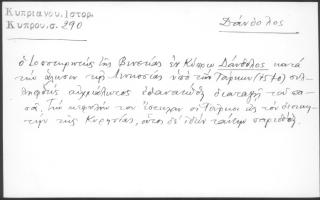 Κυπριανου. Ιστορ.
Κυπρου, σ. 290
Δάνδολος
ὁ Τοποτηρητὴς τῆς Βενετίας ἐν Κύπρῳ Δάνδολος κατὰ
τὴν ἅλωσιν τῆς Λευκοσίας ὑπὸ τῶν Τούρκων (1570) συλ-
ληφθεὶς αἰχμάλωτος ἐθανατώθη διαταγῇ τοῦ πα-
σᾶ. Τὴν κεφαλήν του ἔστειλαν οἱ Τοῦρκοι ὡς τὸν διοικη-
τὴν τῆς Κυρηνείας, οὗτος δὲ ἰδὼν ταύτην παρέδωκ.